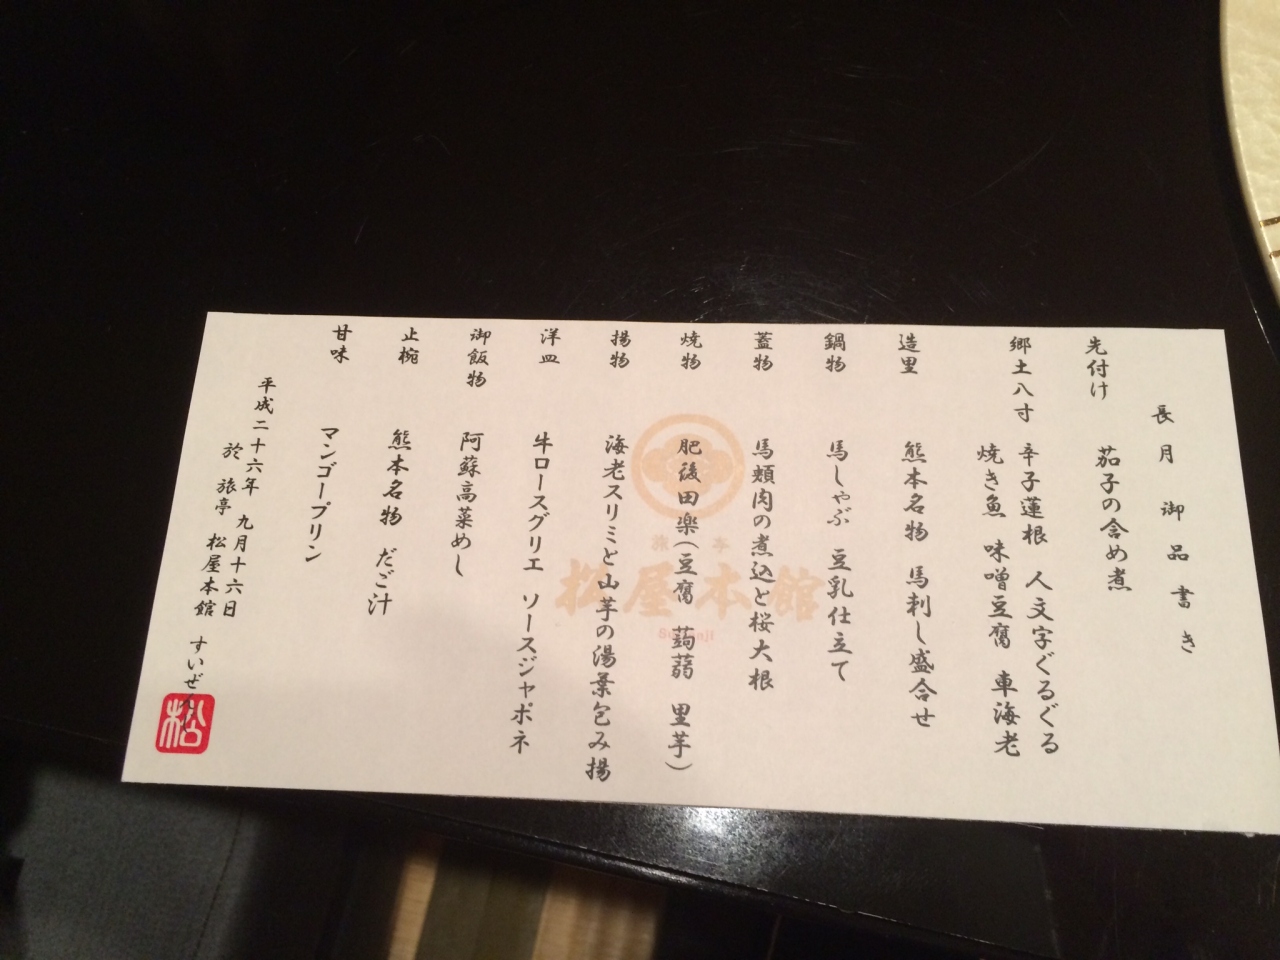 長月 御品書き
先付け 茄子の含め煮
郷土八寸 辛子蓮根 人文字ぐるぐる
焼き魚 味噌豆腐 車海老
造里 熊本名物 馬刺し盛合せ
鍋物 馬しゃぶ 豆乳仕立て
蓋物 馬頬肉の煮込と桜大根
焼物 肥後田楽(豆腐 蒟蒻 里芋)
揚物 海老スリミと山芋の湯葉包み揚
洋皿 牛ロースグリエ ソースジャポネ
御飯物 阿蘇高菜めし
止椀 熊本名物 だご汁
甘味 マンゴープリン
平成二十六年 九月十六日
於 旅亭 松屋本館 すいぜんじ
松
旅亭
松屋本館
Suizenji